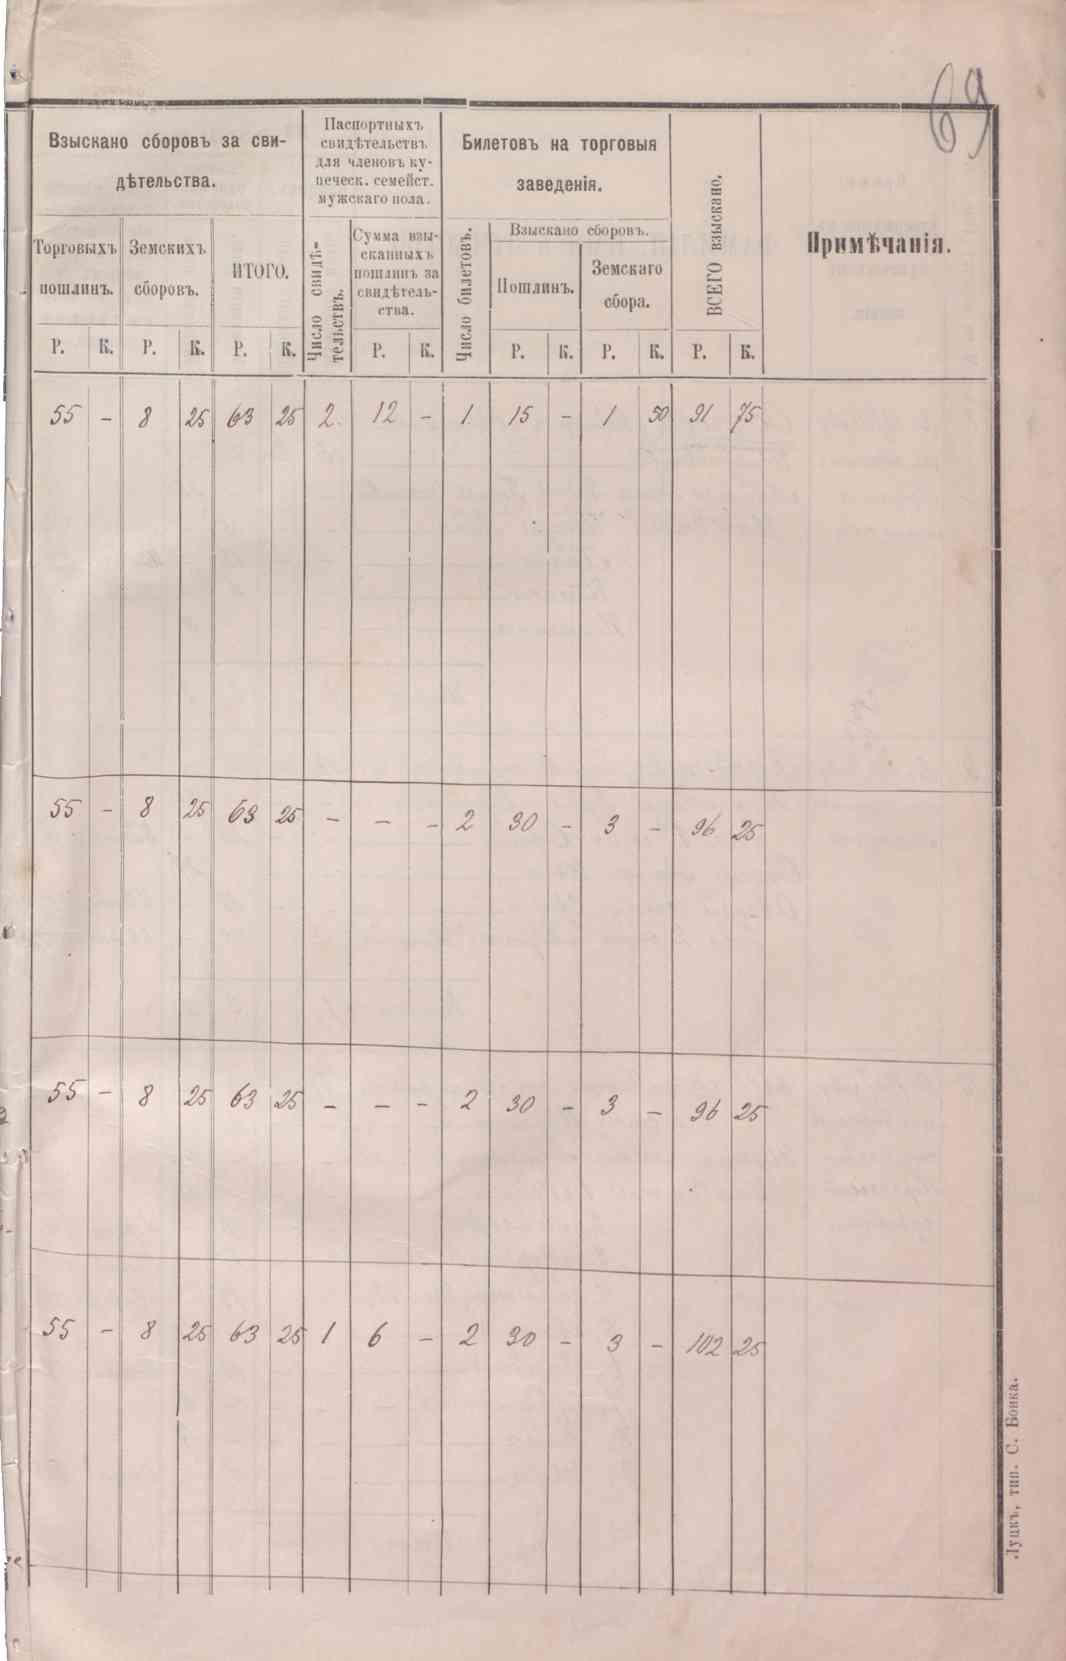 69
Взыскано сборовъ за сви-
дѣтельства.
Торговыхъ
пошлинъ.
Земскихъ
сборовъ.
ИТОГО.
Паспортныхъ
свидѣтельствъ
для членовъ ку-
печеск. семейст.
мужскаго пола.
Число свидѣ-
тельствъ.
Сумма взы-
сканныхъ
пошлинъ за
свидѣтель-
ства.
Билетовъ на торговыя
заведенія.
Число билетовъ.
Взыскано сборовъ.
Пошлинъ.
Земскаго
сбора.
ВСЕГО взыскано.
Примѣчанія.
Р. К. Р. К. Р. К. Р. К. Р. К. Р. К. Р. К.
55 - 8 25 63 25 2. 12 - 1. 15 - 1 50 91 75
55 - 8 25 63 25 - - - 2 30 - 3 - 96 25
55 - 8 25 63 25 - - - 2 30 - 3 - 96 25
55 - 8 25 63 25 1 6 - 2 30 - 3 - 102 25
Луцкъ, тип. С. Бонка.